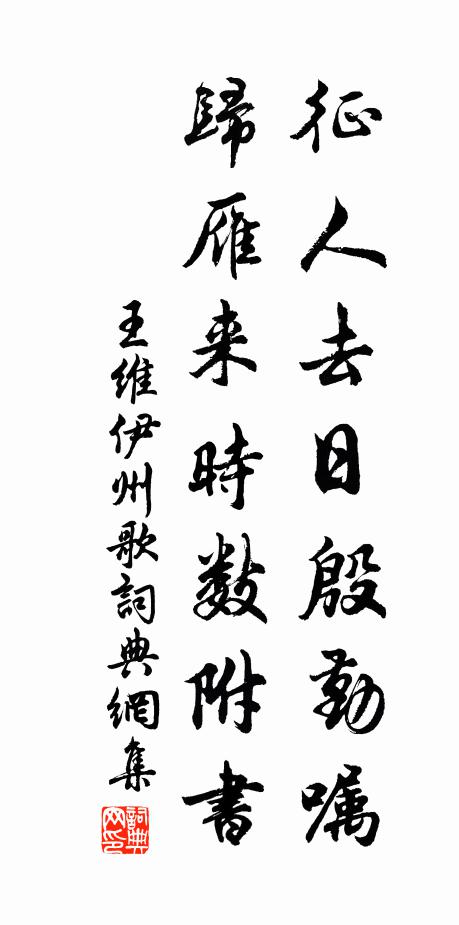 征人去日殷勤嘱
歸雁来時數附書
王維伊州歌詞典網集
詞典
网印